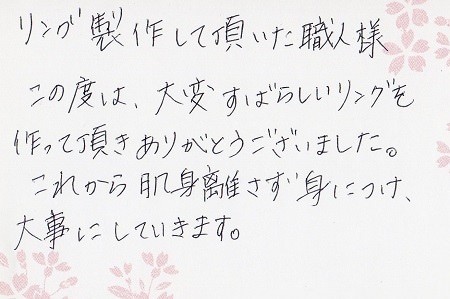 リング製作して頂いた職人様
この度は、大変すばらしいリングを
作って頂きありがとうございました。
これから肌身離さず身につけ、
大事にしていきます。